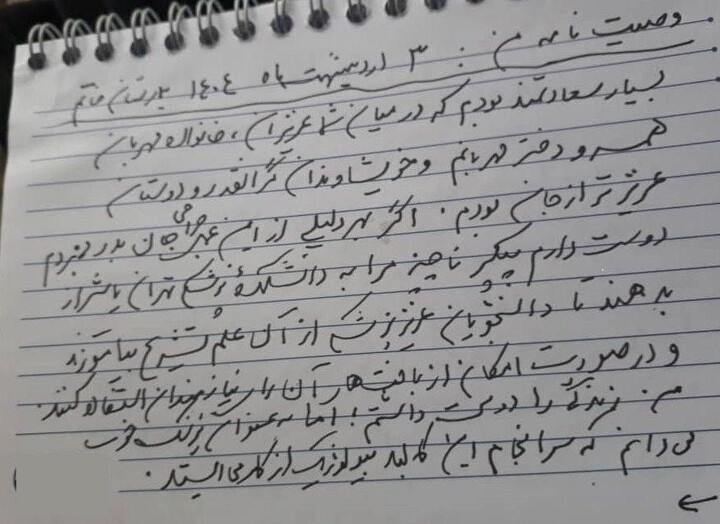 وصیت نامه من : ۳ اردیبهشت ماه ۱۴۰۴ بیمارستان خاتم
بسیار سعادتمند بودم که در میان شما عزیزان ، خانواده مهربان
همسر و دختر مهربانم و خویشاوندان گرانقدر و دوستان
عزیزتر از جان بودم . اگر بهر دلیلی از این عمل جراحی جان بدر نبردم
دوست دارم پیکر ناچیز مرا به دانشکده پزشکی تهران یا شیراز
بدهند تا دانشجویان عزیز پزشکی از آن علم تشریح بیاموزند
و در صورت امکان از بافت‌های آن برای نیازمندان استفاده کنند.
من زندگی را دوست داشتم ! اما به عنوان پزشک خوب
می دانم که سرانجام این کالبد بیولوژیک از کار می ایستد .
←